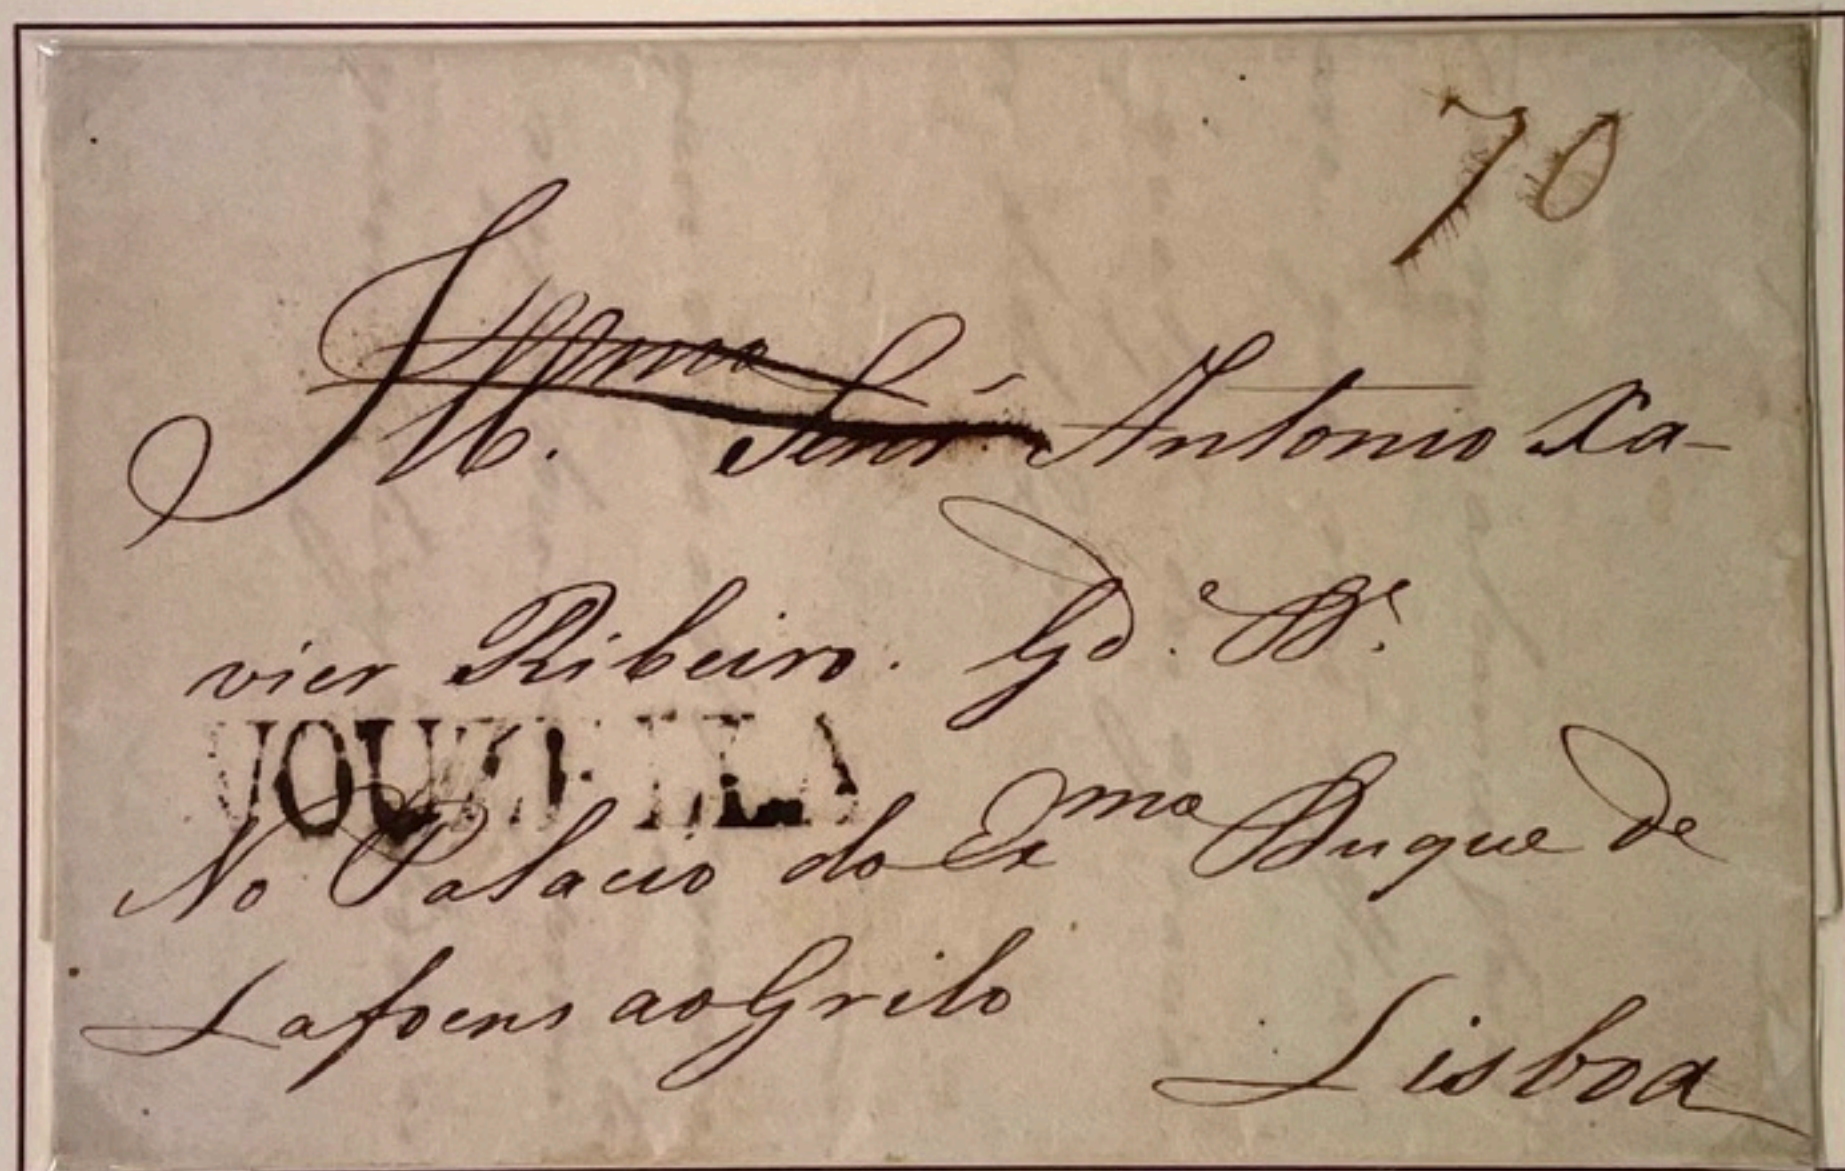 70
Illmo. Senr. Antonio Xa-
vier Ribeiro. Gde. Be.
VOUZELLA
No Palacio do Exmo Duque de
Lafoens ao Grilo
Lisboa